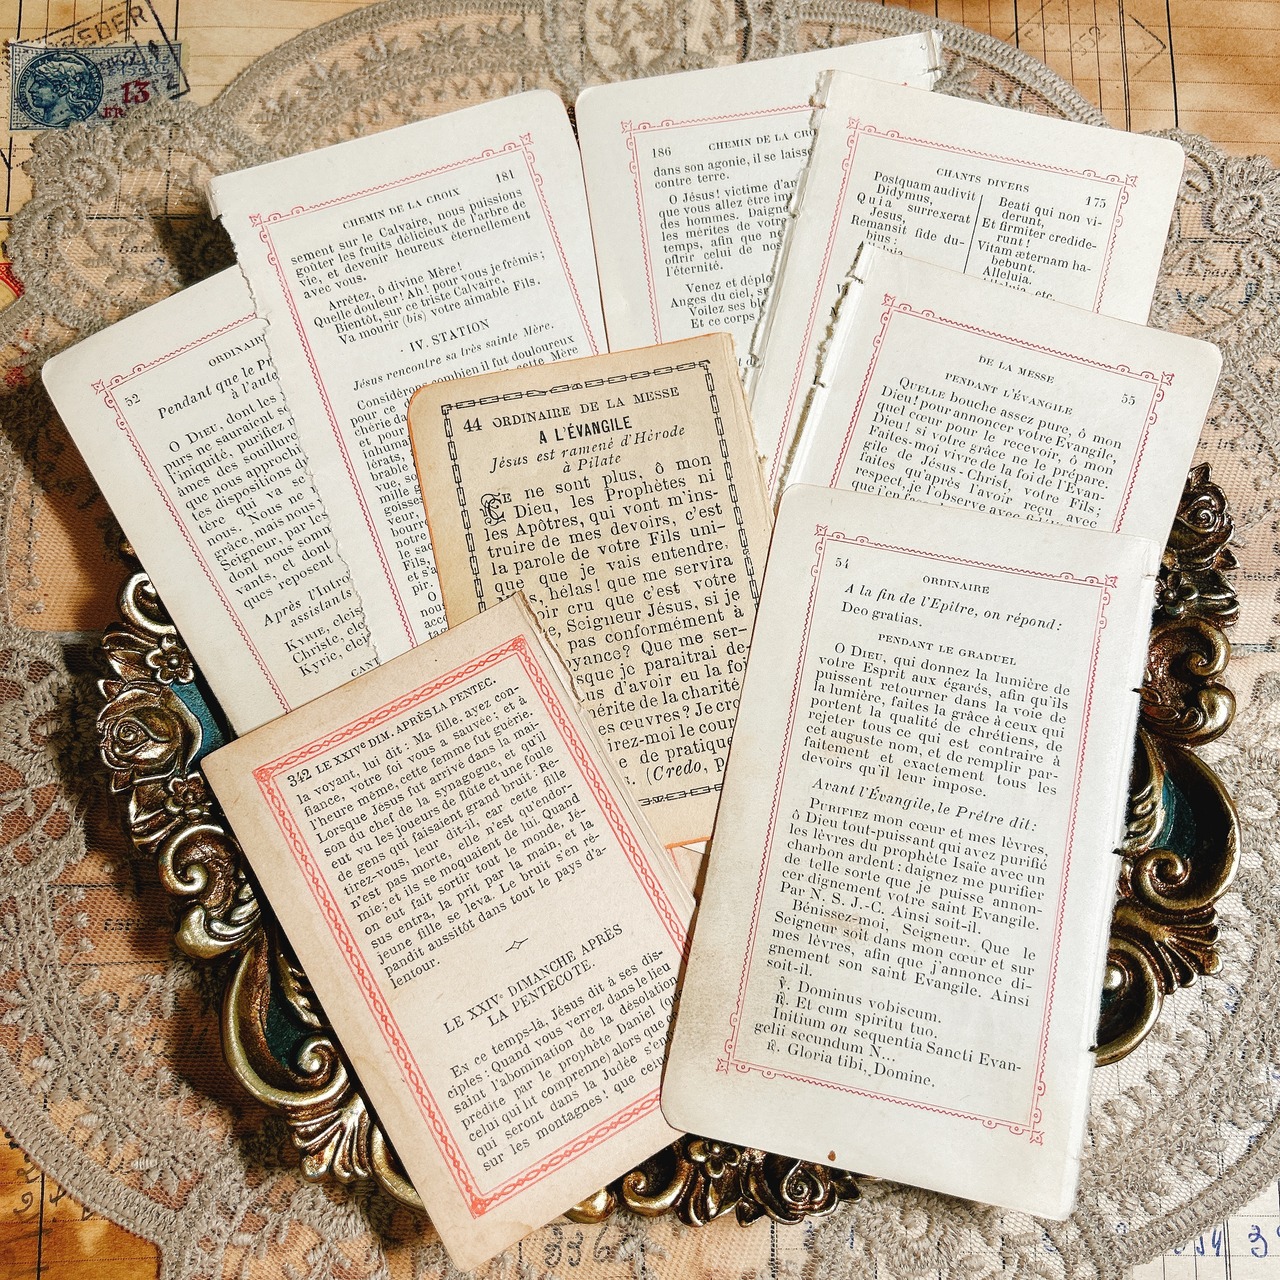 FR 13
52
ORDINAIR
Pendant que le Pr
à l'ante
O DIEU, dont les
purs ne sauraient s
l'iniquité, purifiez n
âmes des souillure
que nous approchi
les dispositions du
tère qui va se
nous. Nous ne
grâce, mais nous
Seigneur, par les
dont nous somm
vants, et dont
ques reposent
Après l'Intro
assistants
Kyrie, eleis
Christe, elei
Kyrie, elei
CHEMIN DE LA CROIX 181
sement sur le Calvaire, nous puissions
goûter les fruits délicieux de l'arbre de
vie, et devenir heureux éternellement
avec vous.
Arrêtez, ô divine Mère!
Quelle douleur! Ah! pour vous je frémis;
Bientôt, sur ce triste Calvaire,
Va mourir (bis) votre aimable Fils.
IV. STATION
Jésus rencontre sa très sainte Mère.
Considérons combien il fut douloureux
186 CHEMIN DE LA CRO
dans son agonie, il se laisse
contre terre.
O Jésus! victime d'a
que vous allez être im
des hommes. Daign
les mérites de votre
temps, afin que n
offrir celui de nos
l'éternité.
Venez et déplo
Anges du ciel, s
Voilez ses bl
Et ce corps
CHANTS DIVERS 175
Postquam audivit
Didymus,
Quia surrexerat
Jesus,
Remansit fide du-
bius;
Beati qui non vi-
derunt,
Et firmiter credide-
runt!
Vitam æternam ha-
bebunt.
Alleluia.
DE LA MESSE 55
PENDANT L'ÉVANGILE
QUELLE bouche assez pure, ô mon
Dieu! pour annoncer votre Evangile,
quel cœur pour le recevoir, ô mon
Dieu! si votre grâce ne le prépare.
Faites-moi vivre de la foi de l'Evan-
gile de Jésus-Christ, votre Fils;
faites qu'après l'avoir reçu avec
respect, je l'observe avec
44 ORDINAIRE DE LA MESSE
A L'ÉVANGILE
Jésus est ramené d'Hérode
à Pilate
CE ne sont plus, ô mon
Dieu, les Prophètes ni
les Apôtres, qui vont m'ins-
truire de mes devoirs, c'est
la parole de votre Fils uni-
que que je vais entendre,
s, hélas! que me servira
oir cru que c'est votre
e, Seigneur Jésus, si je
pas conformément à
oyance? Que me ser-
sque je paraîtrai de-
us d'avoir eu la foi
mérite de la charité
es œuvres? Je cro
irez-moi le cour
e de pratique
s. (Credo, p
342 LE XXIVe DIM. APRÈS LA PENTEC.
la voyant, lui dit: Ma fille, ayez con-
fiance, votre foi vous a sauvée; et à
l'heure même, cette femme fut guérie.
Lorsque Jésus fut arrivé dans la mai-
son du chef de la synagogue, et qu'il
eut vu les joueurs de flûte et une foule
de gens qui faisaient grand bruit: Re-
tirez-vous, leur dit-il, car cette fille
n'est pas morte, elle n'est qu'endor-
mie; et ils se moquaient de lui. Quand
on eut fait sortir tout le monde, Jé-
sus entra, la prit par la main, et la
jeune fille se leva. Le bruit s'en ré-
pandit aussitôt dans tout le pays d'a-
lentour.
LE XXIVe DIMANCHE APRÈS
LA PENTECOTE.
En ce temps-là, Jésus dit à ses dis-
ciples: Quand vous verrez dans le lieu
saint l'abomination de la désolation
prédite par le prophète Daniel (que
celui qui lit comprenne) alors que c
qui seront dans la Judée s'en
sur les montagnes! que celui
54
ORDINAIRE
A la fin de l'Epitre, on répond:
Deo gratias.
PENDANT LE GRADUEL
O DIEU, qui donnez la lumière de
votre Esprit aux égarés, afin qu'ils
puissent retourner dans la voie de
la lumière, faites la grâce à ceux qui
portent la qualité de chrétiens, de
rejeter tous ce qui est contraire à
cet auguste nom, et de remplir par-
faitement et exactement tous les
devoirs qu'il leur impose.
Avant l'Évangile, le Prêtre dit:
PURIFIEZ mon cœur et mes lèvres,
ô Dieu tout-puissant qui avez purifié
les lèvres du prophète Isaïe avec un
charbon ardent: daignez me purifier
de telle sorte que je puisse annon-
cer dignement votre saint Evangile.
Par N. S. J.-C. Ainsi soit-il.
Bénissez-moi, Seigneur. Que le
Seigneur soit dans mon cœur et sur
mes lèvres, afin que j'annonce di-
gnement son saint Evangile. Ainsi
soit-il.
℣. Dominus vobiscum.
℟. Et cum spiritu tuo.
Initium ou sequentia Sancti Evan-
gelii secundum N...
℟. Gloria tibi, Domine.